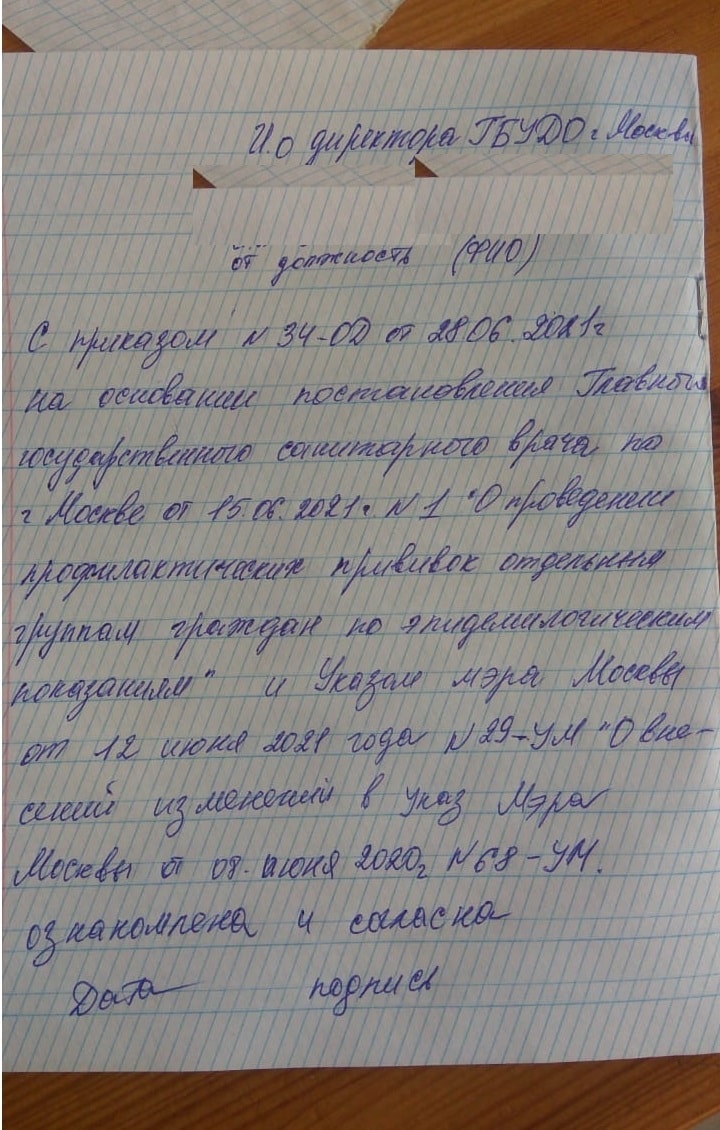 И.о директора ГБУДО г Москвы
от должность (ФИО)
С приказом N 34-ОД от 28 06. 2021 г
на основании постановления Главного
государственного санитарного врача по
г Москве от 15.06.2021г N 1 "О проведении
профилактических прививок отдельным
группам граждан по эпидемилогическим
показаниям" и Указом мэра Москвы
от 12 июня 2021 года N 29-УМ "О вне-
сений изменений в указ Мэра
Москвы от 08. июня 2020г N 68-УМ.
ознакомлена и согласна
Дата подпись